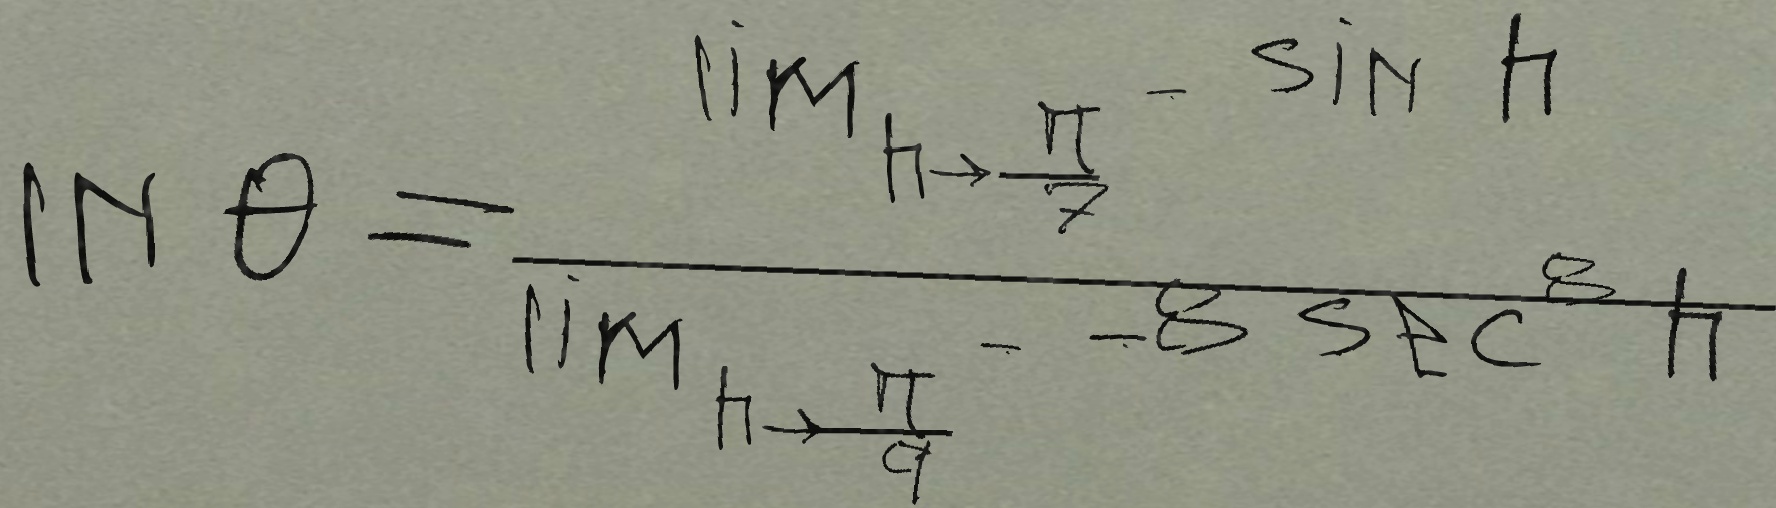 \ln \theta = \frac{\lim_{h \to \frac{\pi}{7}^-} \sin h}{\lim_{h \to \frac{\pi}{9}^-} -8 \sec^8 h}